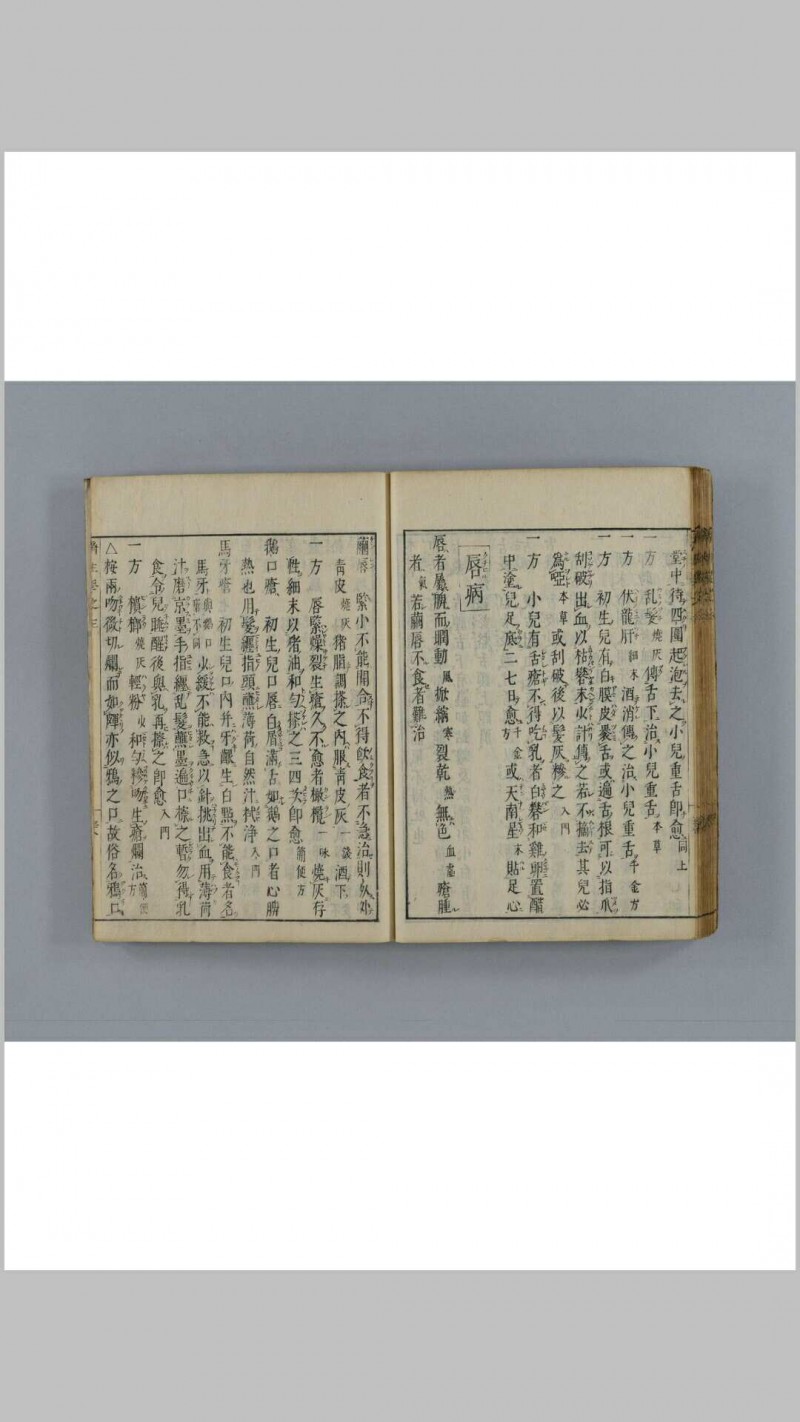 堂中待四圍起泡去之小兒重舌即愈同上
一方 乱髮燒灰傅舌下治小兒重舌本草
一方 伏龍肝細末酒消傅之治小兒重舌千金方
一方 初生兒有白膜皮裹舌或遍舌根可以指爪
刮破出血以枯礬末火計傅之若不摘去其兒必
為啞本草或刮破後以髮灰糝之入門
一方 小兒有舌瘡不得吃乳者白礬和雞卵置醋
中塗兒足底二七日愈千金方或天南星末貼足心
唇病
唇者屬脾而瞤動風揪縮寒裂乾熱無色血虚瘡腫
者氣若繭唇不食者難治
繭唇 緊小不能開合不得飲食者不急治則死
青皮燒灰猪脂調搽之內服青皮灰一錢酒下
一方 唇緊燥裂生瘡久不愈者橄欖一味燒灰存
性細末以猪油和勻搽之三四次即愈簡便方
鵝口瘡 初生兒口唇白屑滿舌如鵝之口者心脾
熱也用髮纏指頭蘸薄荷自然汁拭浄入門
馬牙瘡 初生兒口內并牙齦生白點不能食者名
馬牙與鵝口瘡不同少緩不能救急以針挑出血用薄荷
汁磨京墨手指纏乱髮蘸墨遍口搽之暫勿得乳
食令兒睡醒後與乳再搽之即愈入門
一方 檳榔燒灰輕粉少和勻搽吻生瘡爛治簡便方
△按兩吻微切爛而如障亦似鴉之口故俗名鴉口